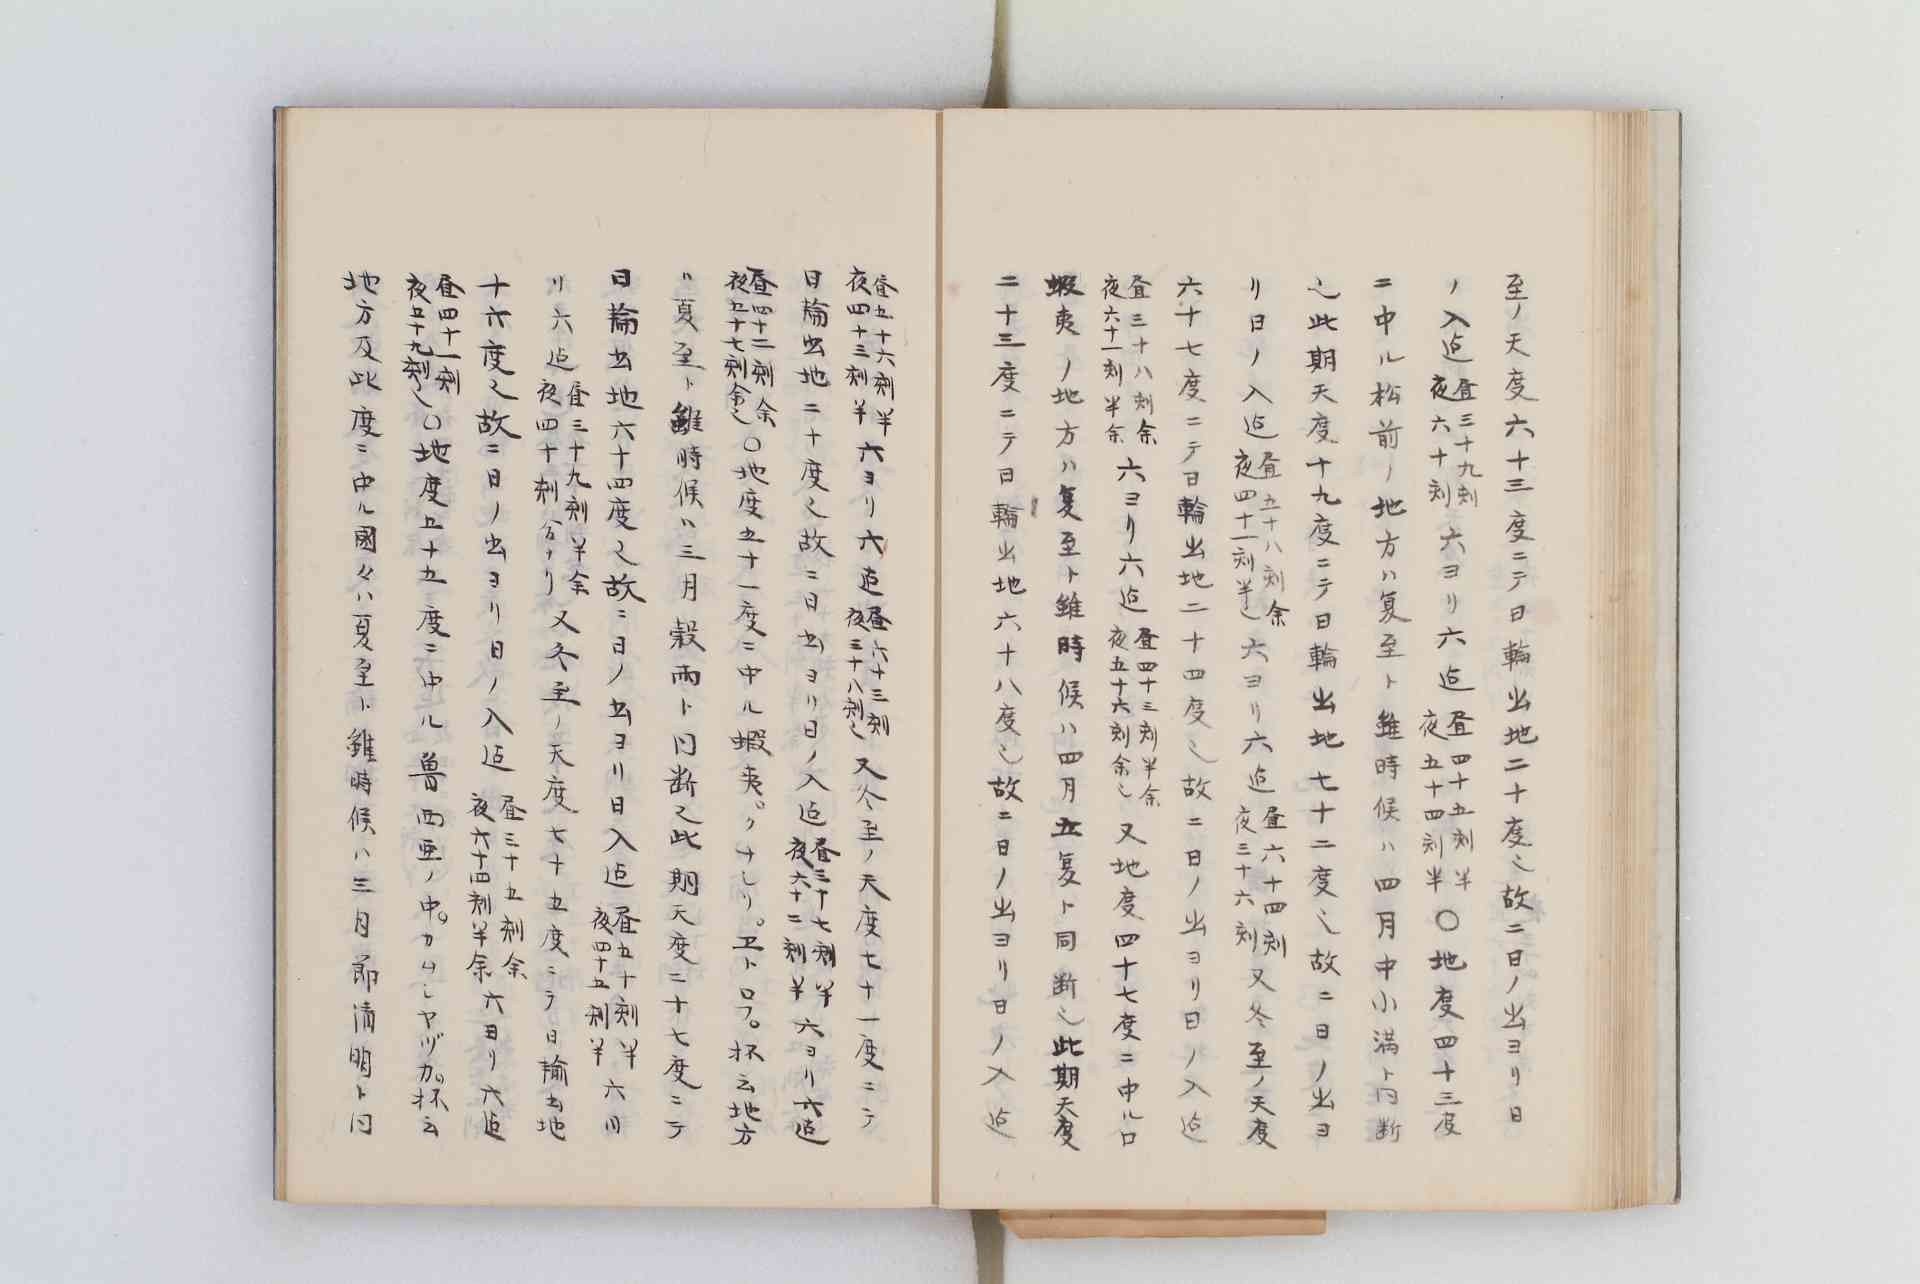 至ノ天度六十三度ニテ日輪出地二十度也故ニ日ノ出ヨリ日
ノ入迠昼三十九刻夜六十刻六ヨリ六迠昼四十五刻半夜五十四刻半〇地度四十三度
ニ中ル松前ノ地方ハ夏至ト雖時候ハ四月中小満ト同断
也此期天度十九度ニテ日輪出地七十二度也故ニ日ノ出ヨ
リ日ノ入迠昼五十八刻余夜四十一刻半也六ヨリ六迠昼六十四刻夜三十六刻又冬至ノ天度
六十七度ニテ日輪出地二十四度也故ニ日ノ出ヨリ日ノ入迠
昼三十八刻余夜六十一刻半余六ヨリ六迠昼四十三刻半余夜五十六刻余也又地度四十七度ニ中ル口
蝦夷ノ地方ハ夏至ト雖時候ハ四月立夏ト同断也此期天度
二十三度ニテ日輪出地六十八度也故ニ日ノ出ヨリ日ノ入迠
昼五十六刻半夜四十三刻半六ヨリ六迠昼六十三刻夜三十八刻也又冬至ノ天度七十一度ニテ
日輪出地二十度也故ニ日出ヨリ日ノ入迠昼三十七刻半夜六十二刻半六ヨリ六迠
昼四十二刻余夜五十七刻余也〇地度五十一度ニ中ル蝦夷。クナシリ。ヱトロフ。抔云地方
ハ夏至ト雖時候ハ三月穀雨ト同断也此期天度二十七度ニテ
日輪出地六十四度也故ニ日ノ出ヨリ日入迠昼五十刻半夜四十五刻半六ヨ
リ六迠昼三十九刻半余夜四十刻余ナリ又冬至ノ天度七十五度ニテ日輪出地
十六度也故ニ日ノ出ヨリ日ノ入迠昼三十五刻余夜六十四刻半余六ヨリ六迠
昼四十一刻夜五十九刻也〇地度五十五度ニ中ル魯西亜ノ中。カムシヤヅカ。抔云
地方及此度ニ中ル國々ハ夏至ト雖時候ハ三月節清明ト同